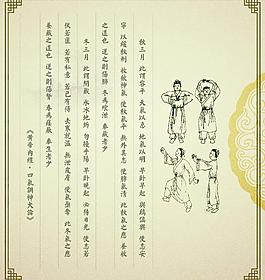 秋三月 此謂容平 天氣以急 地氣以明 早卧早起 與鷄俱興 使志安
寧 以緩秋刑 收斂神氣 使秋氣平 無外其志 使肺氣清 此秋氣之應 養收
之道也 逆之則傷肺 冬為飧泄 奉藏者少
冬三月 此謂閉藏 水冰地坼 勿擾乎陽 早卧晚起 必待日光 使志若
伏若匿 若有私意 若已有得 去寒就溫 無泄皮膚 使氣亟奪 此冬氣之應
養藏之道也 逆之則傷腎 春為痿厥 奉生者少
《黄帝内經·四氣調神大論》